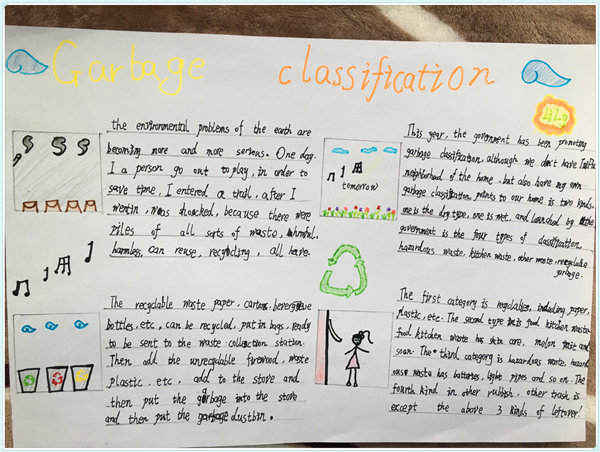 Garbage classification
the environmental problems of the earth are
becoming more and more serious. One day.
I a person go out to play, in order to
save time, I entered a trail, after I
went in, I was shocked, because there were
piles of all sorts of waste, harmful,
harmless, can reuse, recycling, all have.
This year, the government has been promoting
garbage classification, although we don't have
neighborhood of the home, but also have my own
garbage classification, points to our home is two kinds,
one is the dry type, one is wet, and launched by the
government is the four types of classification,
hazardous waste, kitchen waste, other waste, recyclable
garbage.
tomorrow
The recyclable waste paper, cartons, beverage
bottles, etc, can be recycled, put in bags, ready
to be sent to the waste collection station.
Then add the unrecyclable firewood, waste
plastic, etc, add to the stove and
then put the garbage into the stove
and then put the garbage dustbin.
The first category is recyclables, including paper,
plastic, etc. The second type is food kitchen waste
food kitchen waste has skin care, melon and
soon. The third category is hazardous waste, hazard
ous waste has batteries, light pipes and so on. The
fourth kind in other rubbish, other trash is
except the above 3 kinds of leftover!